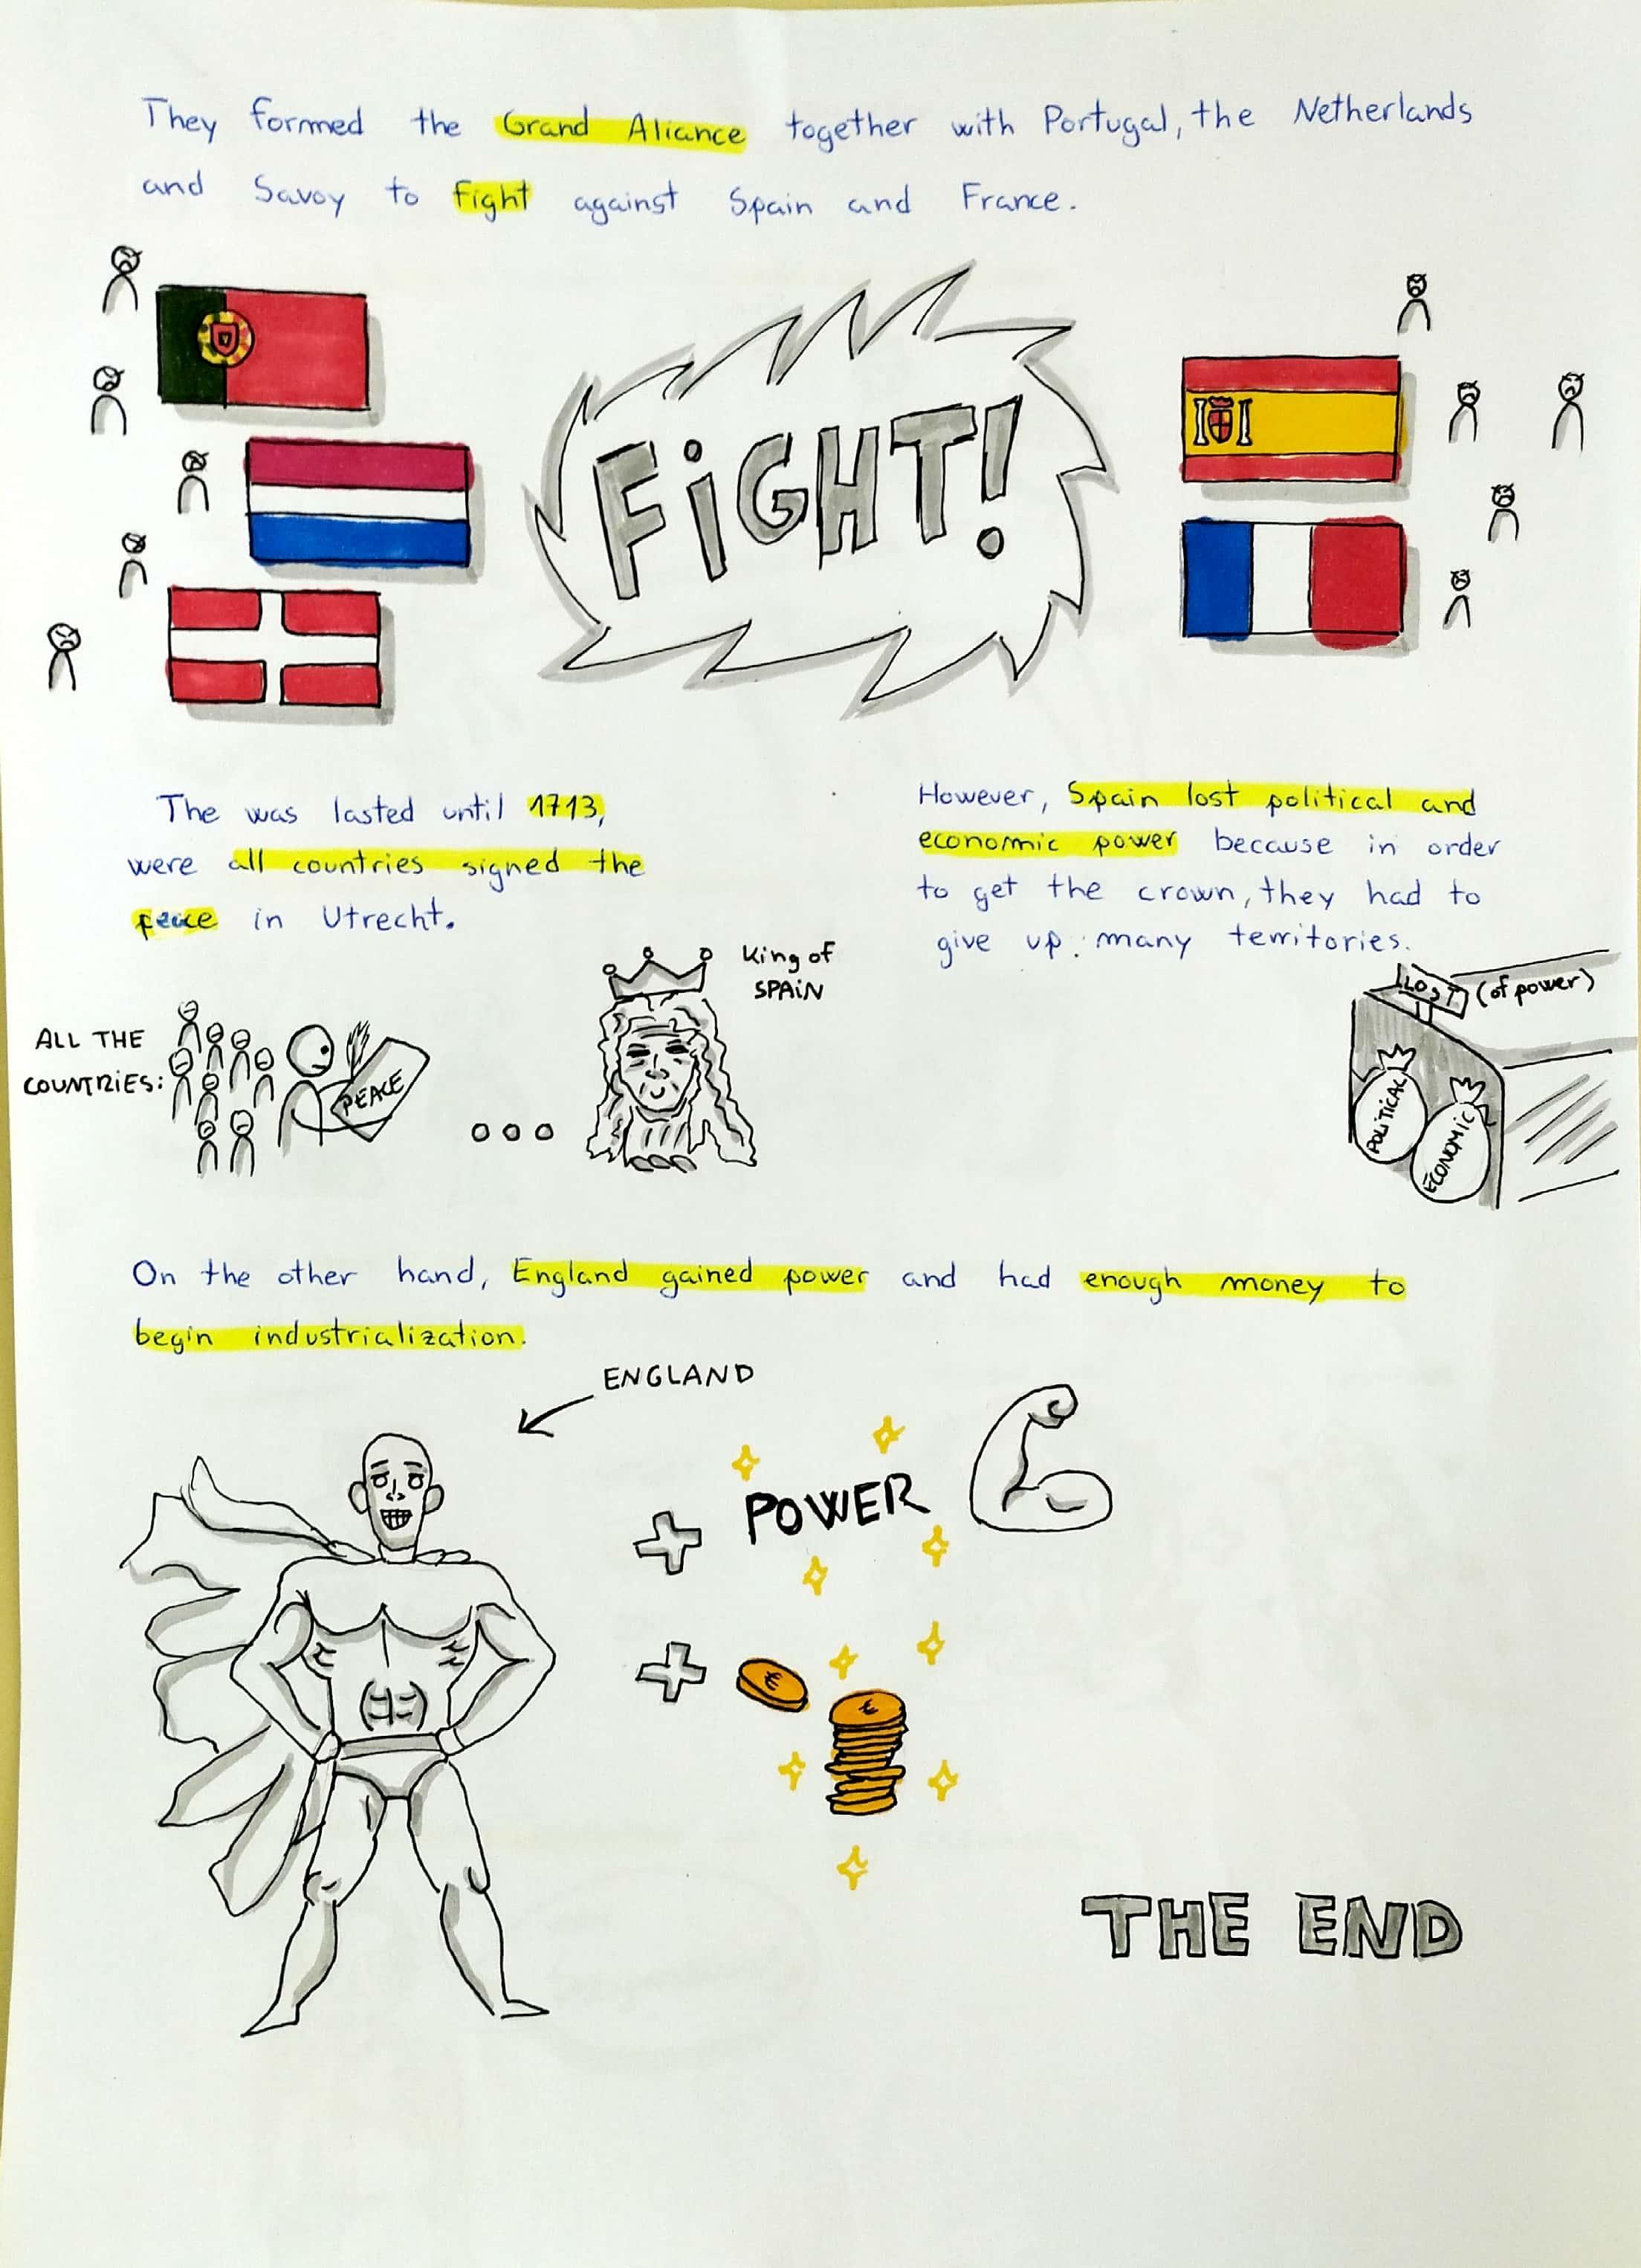 They formed the Grand Aliance together with Portugal, the Netherlands
and Savoy to fight against Spain and France.
FiGHT!
The was lasted until 1713,
were all countries signed the
peace in Utrecht.
However, Spain lost political and
economic power because in order
to get the crown, they had to
give up many territories.
King of
SPAiN
ALL THE
COUNTRIES:
PEACE
LOST (of power)
POLITICAL
ECONOMIC
On the other hand, England gained power and had enough money to
begin industrialization.
ENGLAND
+ POWER
+ € €
THE END